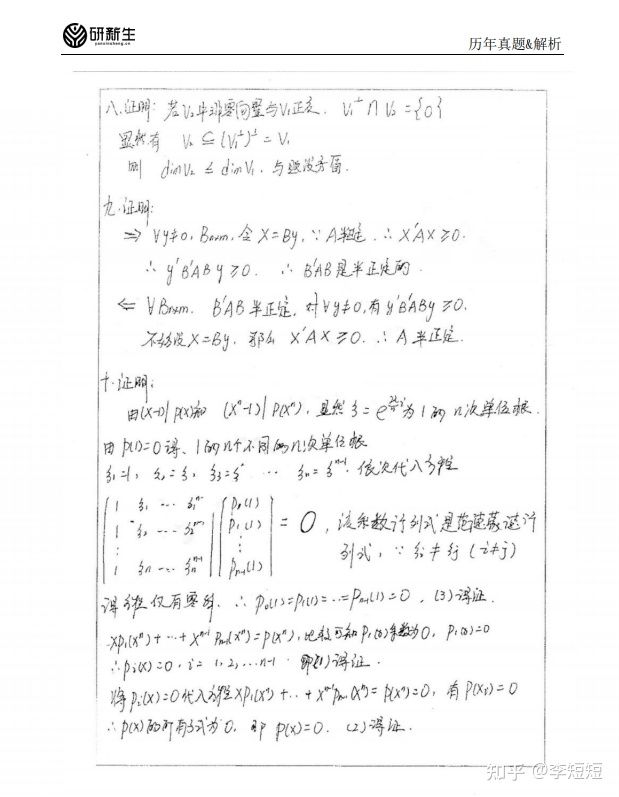 研新生
yanxinsheng.cn
历年真题&解析
八.证明: 若V₂中非零向量与V₁正交. V₁^⊥ ∩ V₂ = {0}
显然有 V₂ ⊆ (V₁^⊥)^⊥ = V₁
则 dimV₂ ≤ dimV₁, 与题设矛盾.
九.证明:
⇒ ∀y≠0, Bn×m, 令 X=By, ∵ A半正定 ∴ X'AX ≥0.
∴ y'B'ABy ≥0. ∴ B'AB是半正定的.
⇐ ∀Bn×m. B'AB半正定, 对∀y≠0, 有y'B'ABy ≥0.
不妨设X=By. 那么 X'AX ≥0. ∴ A半正定.
十.证明:
由(x-1)|p(x)和 (xⁿ-1)|p(xⁿ), 显然 ξ= 为1的n次单位根.
由p(1)=0得, 1的n个不同的n次单位根
ξ₁=1, ξ₂=ξ, ξ₃=ξ² … ξn=ξ^{n-1}. 依次代入方程
1 ξ₁ … ξ₁^{n-1} p₀(1)
1 ξ₂ … ξ₂^{n-1} p₁(1) = 0, 该系数行列式是范德蒙德行
⋮ ⋮ 列式, ∵ (i≠j)
1 ξn … ξn^{n-1} pn-1(1)
得方程仅有零解. ∴ p₀(1)=p₁(1)=…=pn-1(1)=0. (3)得证.
xp₁(xⁿ)+…+x^{n-1}pn-1(xⁿ)=p(xⁿ), 比较可知 系数为0,
∴ pi(x)=0, i=1,2,…n-1 即(1)得证.
将pi(x)=0代入方程xp₁(xⁿ)+…+x^{n-1}pn-1(xⁿ)=p(xⁿ)=0, 有
∴ p(x)的所有 为0, 即 p(x)=0. (2)得证.
知乎 @李短短